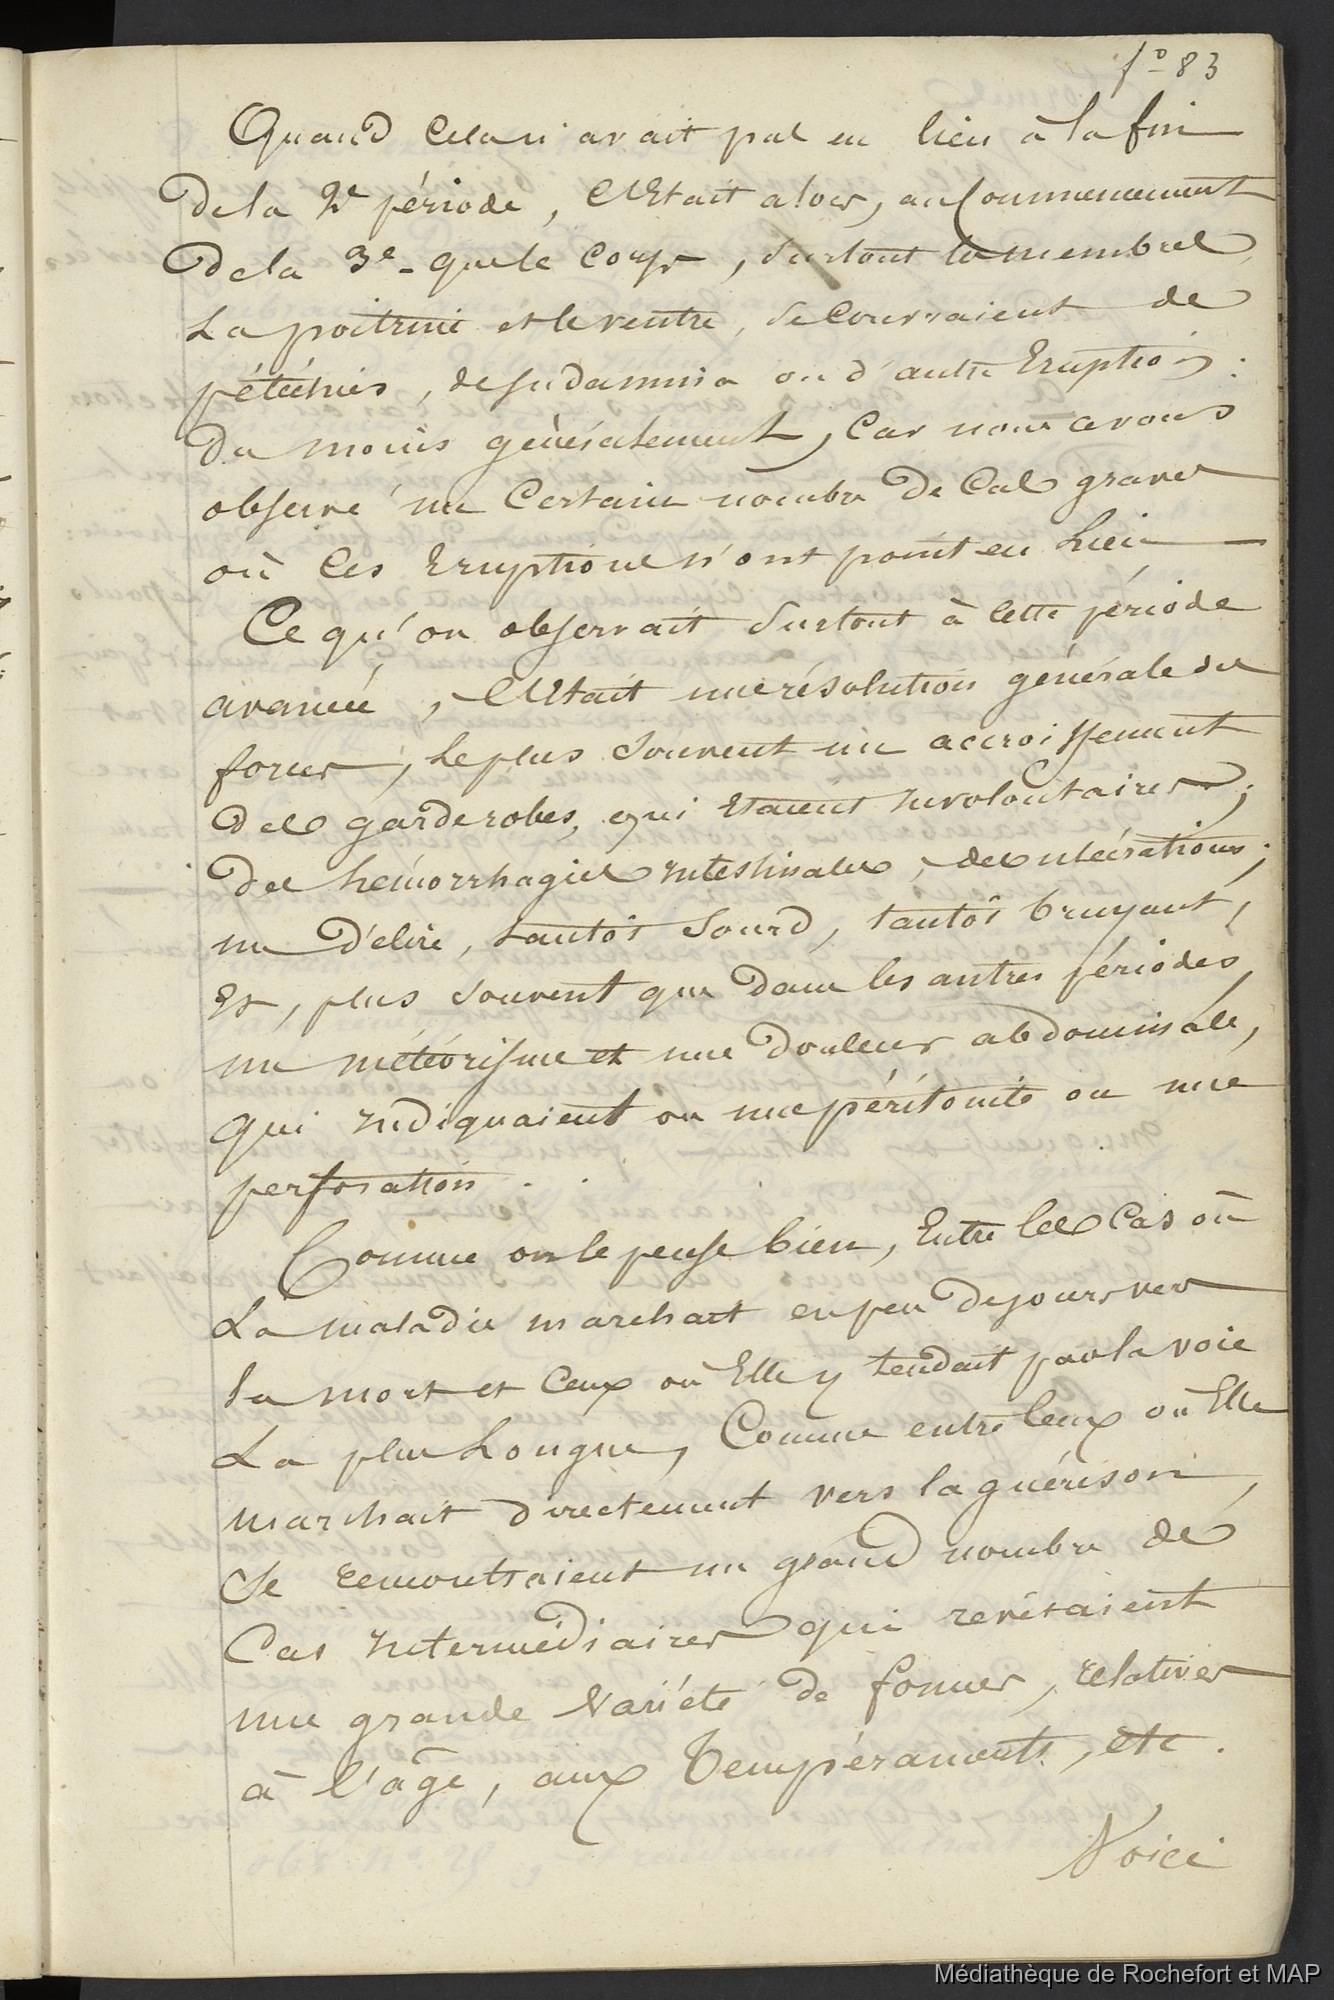 fo 83
Quand cela n'avait pas eu lieu à la fin
de la 2e période, C'Etait alors, au Commencement
de la 3e - que le corps, surtout les membres,
La poitrine et le ventre, se couvraient de
pétéchies, de sudamina ou d'autre Eruption :
du moins généralement, car nous avons
observé un Certain nombre de Cas graves
où Ces Eruptions n'ont point eu Lieu
Ce qu'on observait surtout à cette période
avancée, C'Etait une résolution générale des
forces, Le plus souvent un accroissement
des garderobes, qui Etaient Involontaires ;
des hémorrhagies Intestinales, des ulcérations ;
un délire, tantôt sourd, tantôt bruyant,
Et, plus souvent que dans les autres périodes,
un météorisme et une douleur abdominale,
qui Indiquaient ou une péritonite ou une
perforation.
Comme on le pense bien, Entre les Cas où
La maladie marchait en peu de jours vers
la mort et Ceux où Elle y tendait par la voie
La plus Longue, Comme entre Ceux où Elle
marchait directement vers la guérison,
se remontraient un grand nombre de
Cas Intermédiaires qui revêtaient
une grande Variété de formes, relatives
à l'âge, aux Tempéraments, etc.
Voici
Médiathèque de Rochefort et MAP